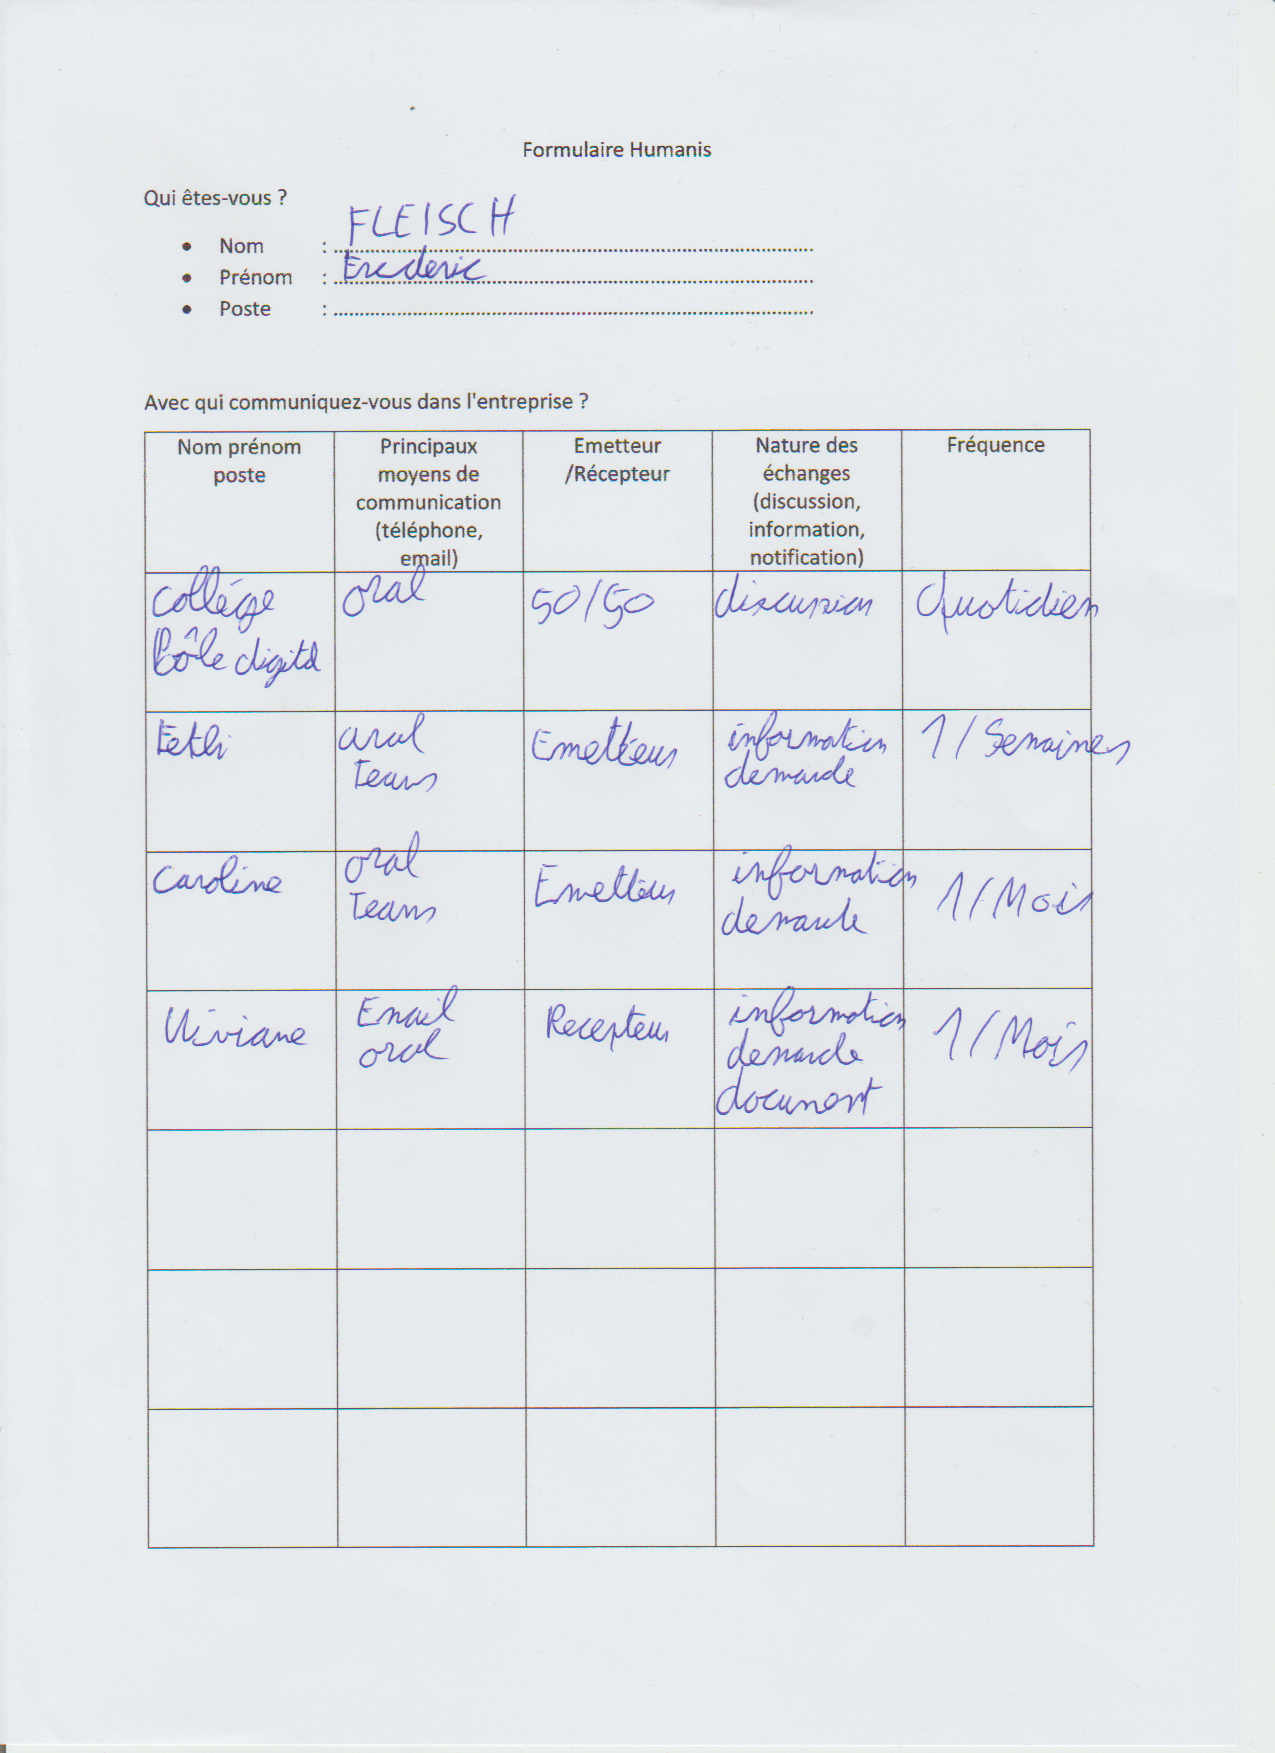 Formulaire Humanis
Qui êtes-vous ?
• Nom : FLEISCH
• Prénom : Frederic
• Poste :
Avec qui communiquez-vous dans l'entreprise ?
Nom prénom
poste
Principaux
moyens de
communication
(téléphone,
email)
Emetteur
/Récepteur
Nature des
échanges
(discussion,
information,
notification)
Fréquence
Collége
Pôle digital
oral
50/50
discussion
Quotidien
oral
Teams
Emetteur
information
demande
1/Semaines
Caroline
oral
Teams
Emetteur
information
demande
1/Mois
Viviane
Email
oral
Recepteur
information
demande
document
1/Mois